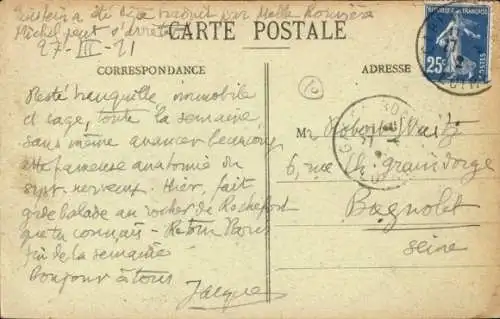 Einstein a été déjà traduit par Melle Rouvière
Michel peut s'arrêter
27-III-21
CARTE POSTALE
CORRESPONDANCE
ADRESSE
Resté tranquille, immobile
et sage, toute la semaine
sans même avancer beaucoup
cette fameuse anatomie du
syst. nerveux. Hier, fait
grde balade au rocher de Rochefort
que tu connais - Retour Paris
fin de la semaine
Bonjour à tous
Jacques
Mr Robert
6, rue Ch. graindorge
Bagnolet
Seine
25c
POSTES